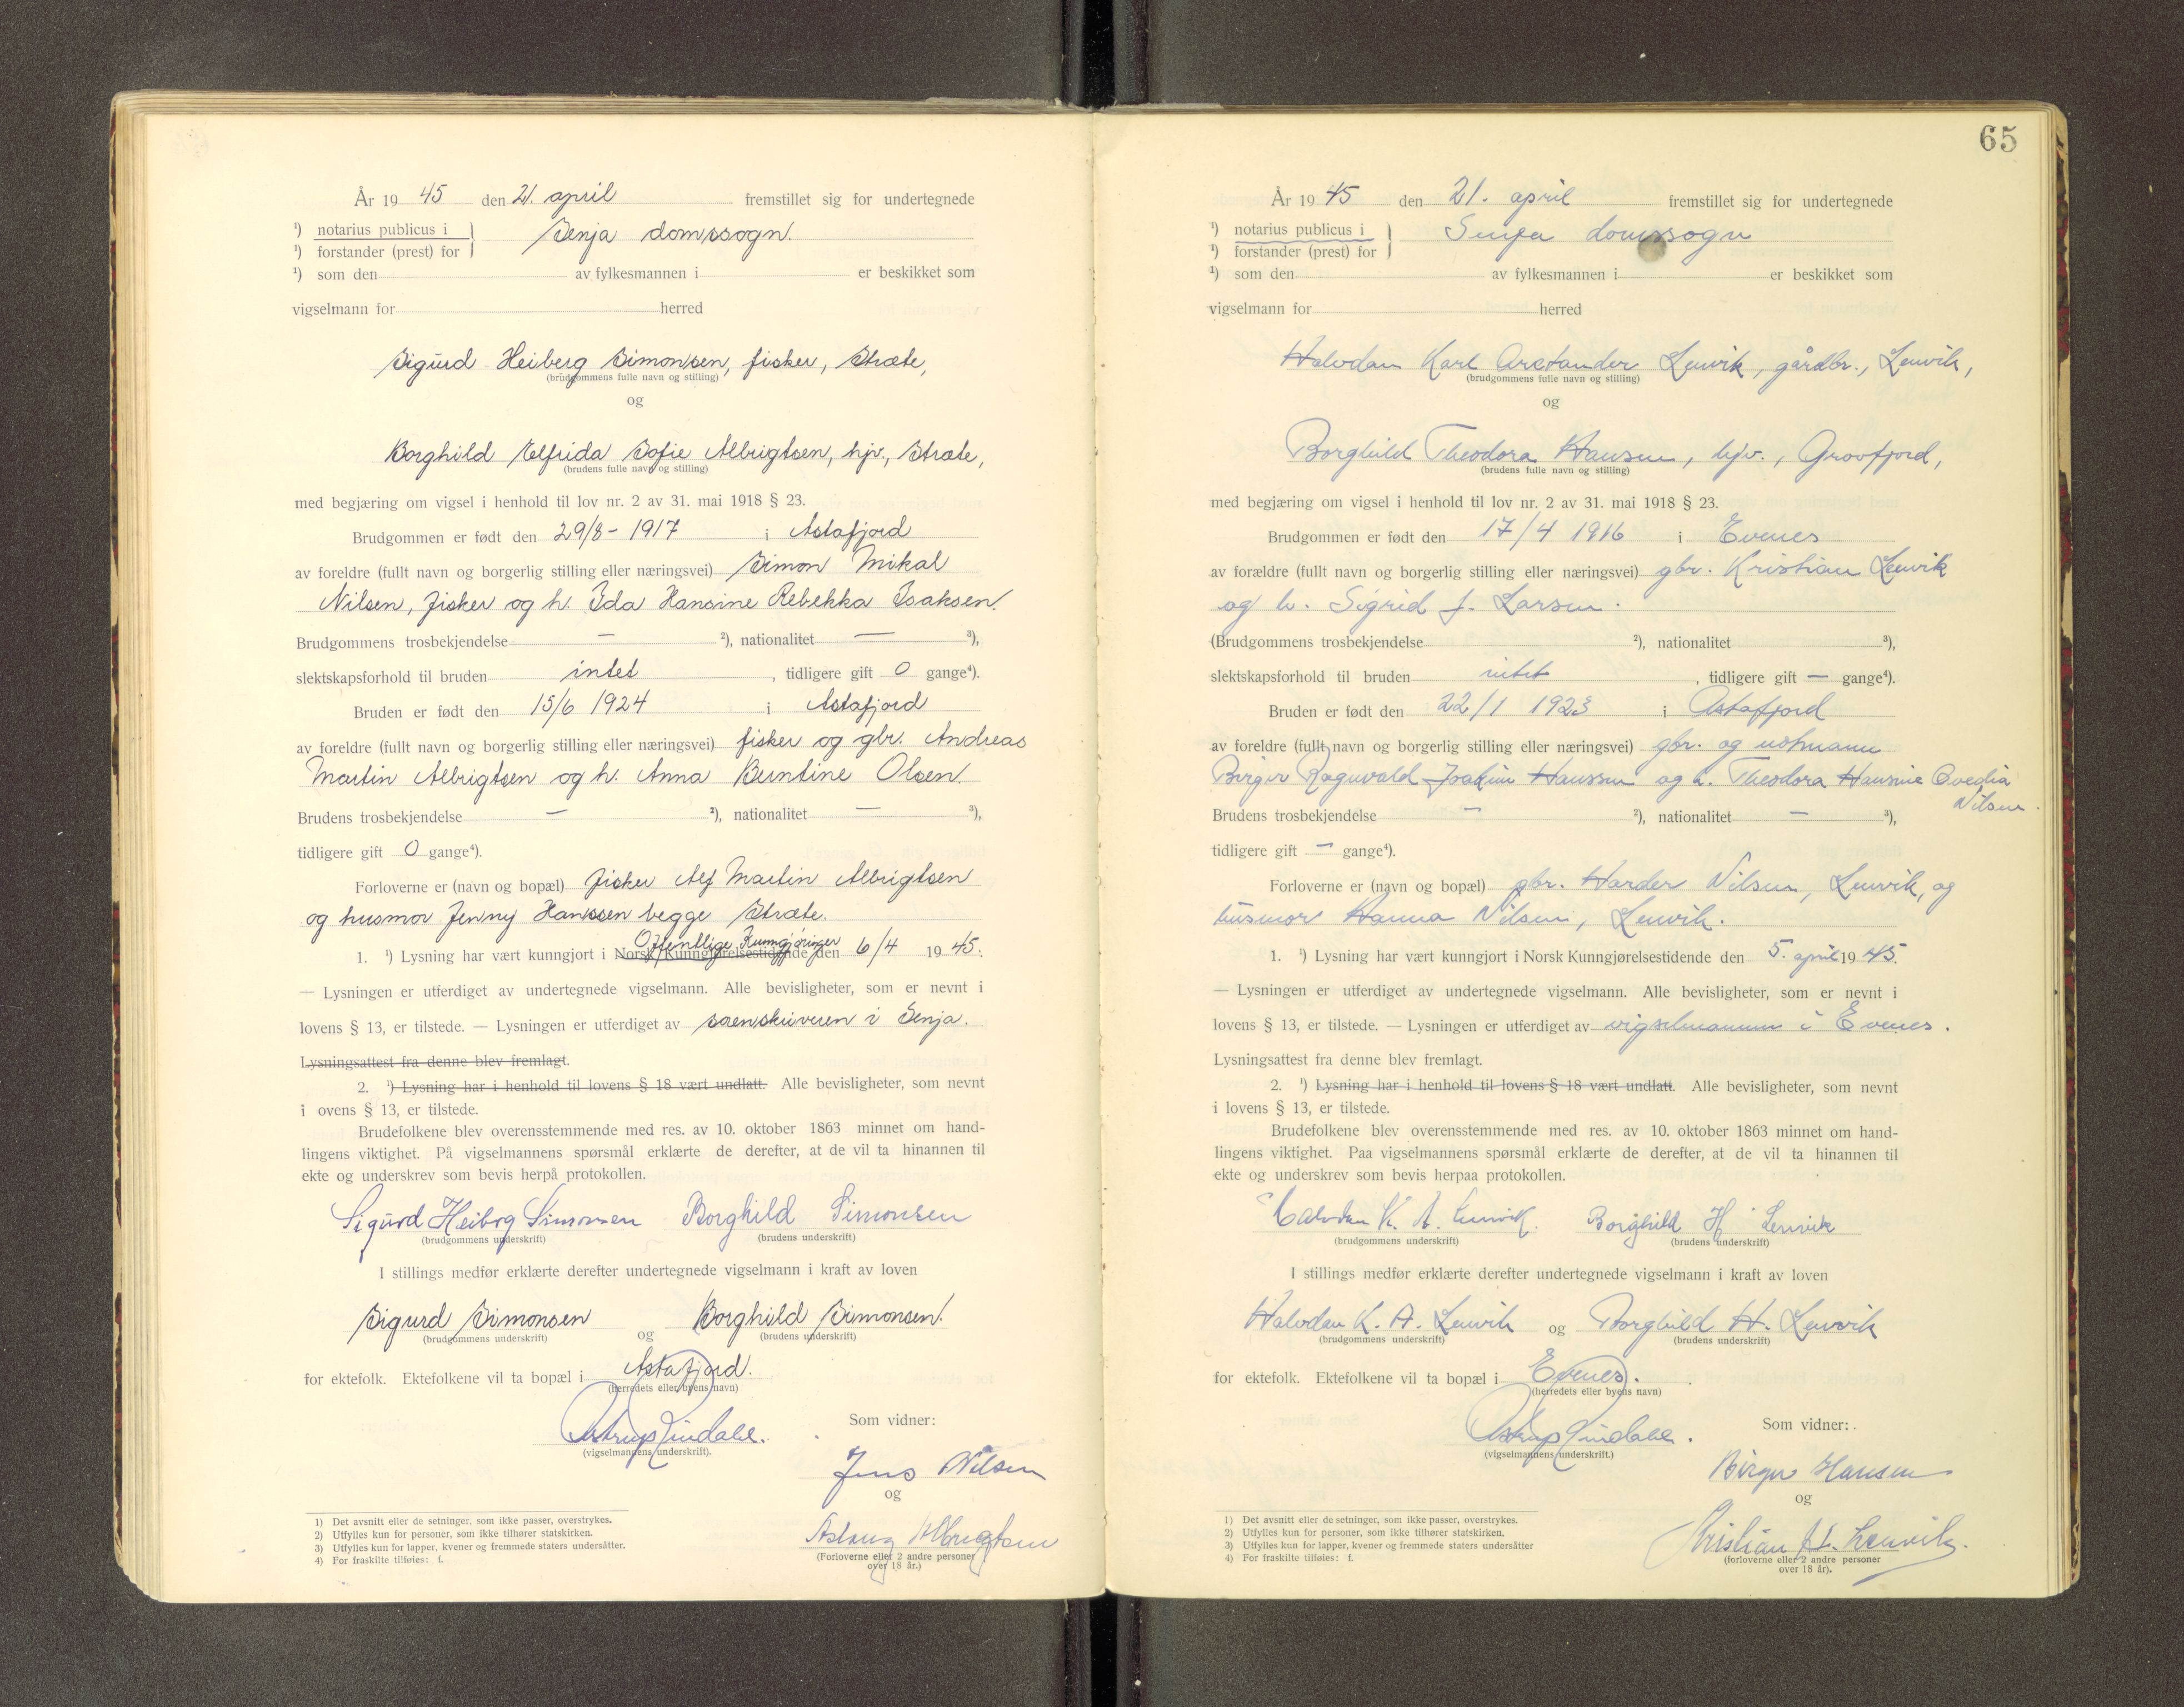 År 19 45 den 21. april fremstillet sig for undertegnede
¹) notarius publicus i } Senja domssogn.
¹) forstander (prest) for
¹) som den av fylkesmannen i er beskikket som
vigselmann for herred
Sigurd Heiberg Simonsen, fisker, Stræte,
(brudgommens fulle navn og stilling)
og
Borghild Elfrida Sofie Albrigtsen, hjv., Stræte,
(brudens fulle navn og stilling)
med begjæring om vigsel i henhold til lov nr. 2 av 31. mai 1918 § 23.
Brudgommen er født den 29/8 - 1917 i Astafjord
av foreldre (fullt navn og borgerlig stilling eller næringsvei) Simon Mikal
Nilsen, fisker og h. Ida Hansine Rebekka Isaksen.
Brudgommens trosbekjendelse — ²), nationalitet — ³),
slektskapsforhold til bruden intet, tidligere gift 0 gange⁴).
Bruden er født den 15/6 1924 i Astafjord
av foreldre (fullt navn og borgerlig stilling eller næringsvei) fisker og gbr. Andreas
Martin Albrigtsen og h. Anna Buntine Olsen.
Brudens trosbekjendelse — ²), nationalitet — ³),
tidligere gift 0 gange⁴).
Forloverne er (navn og bopæl) fisker Alf Martin Albrigtsen
og husmor Jenny Hanssen begge Stræte.
Offentlige Kunngjøringer
1. ¹) Lysning har vært kunngjort i Norsk Kunngjørelsestidende den 6/4 19 45.
— Lysningen er utferdiget av undertegnede vigselmann. Alle bevisligheter, som er nevnt i
lovens § 13, er tilstede. — Lysningen er utferdiget av sorenskriveren i Senja.
Lysningsattest fra denne blev fremlagt.
2. ¹) Lysning har i henhold til lovens § 18 vært undlatt. Alle bevisligheter, som nevnt
i ovens § 13, er tilstede.
Brudefolkene blev overensstemmende med res. av 10. oktober 1863 minnet om hand-
lingens viktighet. På vigselmannens spørsmål erklærte de derefter, at de vil ta hinannen til
ekte og underskrev som bevis herpå protokollen.
Sigurd Heibrg Simonsen Borghild Simonsen
(brudgommens underskrift) (brudens underskrift)
I stillings medfør erklærte derefter undertegnede vigselmann i kraft av loven
Sigurd Simonsen og Borghild Simonsen.
(brudgommens underskrift) (brudens underskrift)
for ektefolk. Ektefolkene vil ta bopæl i Astafjord.
(herredets eller byens navn)
Astrup Lindahl.
(vigselmannens underskrift).
Som vidner:
Jens Nilsen
og
Aslaug Albrigtsen
(Forloverne eller 2 andre personer
over 18 år.)
1) Det avsnitt eller de setninger, som ikke passer, overstrykes.
2) Utfylles kun for personer, som ikke tilhører statskirken.
3) Utfylles kun for lapper, kvener og fremmede staters undersåtter.
4) For fraskilte tilføies: f.
65
År 19 45 den 21. april fremstillet sig for undertegnede
¹) notarius publicus i } Senja domssogn
¹) forstander (prest) for
¹) som den av fylkesmannen i er beskikket som
vigselmann for herred
Halvdan Karl Arctander Lenvik, gårdbr., Lenvik,
(brudgommens fulle navn og stilling)
og
Borghild Theodora Hansen, hjv., Grovfjord,
(brudens fulle navn og stilling)
med begjæring om vigsel i henhold til lov nr. 2 av 31. mai 1918 § 23.
Brudgommen er født den 17/4 1916 i Evenes
av forældre (fullt navn og borgerlig stilling eller næringsvei) gbr. Kristian Lenvik
og h. Sigrid f. Larsen.
(Brudgommens trosbekjendelse ²), nationalitet ³),
slektskapsforhold til bruden intet, tidligere gift — gange⁴).
Bruden er født den 22/1 1923 i Astafjord
av foreldre (fullt navn og borgerlig stilling eller næringsvei) gbr. og notmann
Birger Ragnvald Joakim Hanssen og h. Theodora Hansine Ovedia
Nilsen.
Brudens trosbekjendelse — ²), nationalitet — ³),
tidligere gift — gange⁴).
Forloverne er (navn og bopæl) gbr. Harder Nilsen, Lenvik, og
husmor Hanna Nilsen, Lenvik.
1. ¹) Lysning har vært kunngjort i Norsk Kunngjørelsestidende den 5. april 19 45.
— Lysningen er utferdiget av undertegnede vigselmann. Alle bevisligheter, som er nevnt i
lovens § 13, er tilstede. — Lysningen er utferdiget av vigselmannen i Evenes.
Lysningsattest fra denne blev fremlagt.
2. ¹) Lysning har i henhold til lovens § 18 vært undlatt. Alle bevisligheter, som nevnt
i lovens § 13, er tilstede.
Brudefolkene blev overensstemmende med res. av 10. oktober 1863 minnet om hand-
lingens viktighet. Paa vigselmannens spørsmål erklærte de derefter, at de vil ta hinannen til
ekte og underskrev som bevis herpaa protokollen.
Halvdan K. A. Lenvik. Borghild H Lenvik
(brudgommens underskrift) (brudens underskrift)
I stillings medfør erklærte derefter undertegnede vigselmann i kraft av loven
Halvdan K. A. Lenvik og Borghild H. Lenvik
(brudgommens underskrift) (brudens underskrift)
for ektefolk. Ektefolkene vil ta bopæl i Evenes.
(herredets eller byens navn)
Astrup Lindahl.
(vigselmannens underskrift.)
Som vidner:
Birger Hansen
og
Kristian A. Lenvik.
(forloverne eller 2 andre personer
over 18 år).
1) Det avsnitt eller de setninger, som ikke passer, overstrykes.
2) Utfylles kun for personer, som ikke tilhører statskirken.
3) Utfylles kun for lapper, kvener og fremmede staters undersåtter
4) For fraskilte tilføies: f.